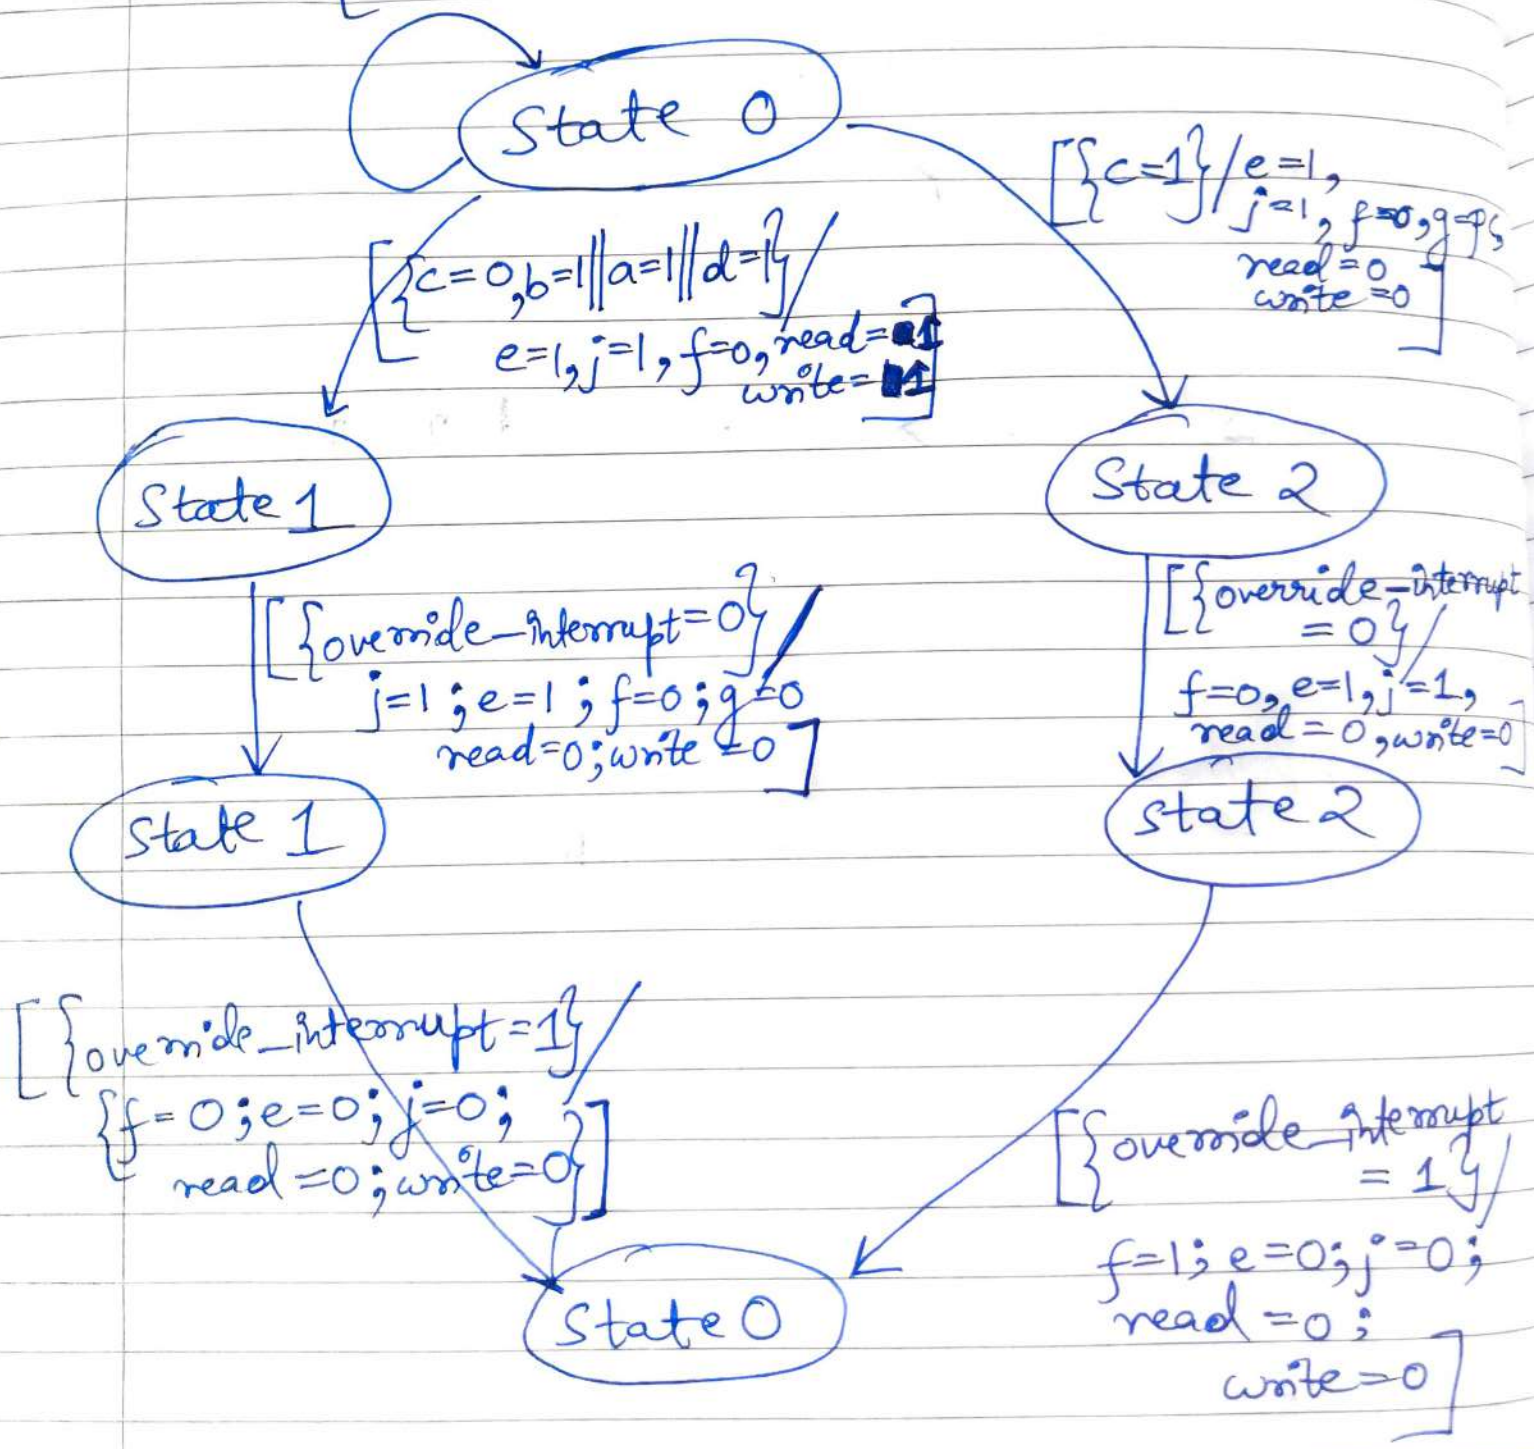 State 0
[{c=1}/e=1,
j=1, f=0,g=
read=0
write=0
]
[{c=0,b=1||a=1||d=1}/
e=1,j=1,f=0,read=1
write=1
]
State 1
State 2
[{override_interrupt=0}/
j=1;e=1;f=0;g=0
read=0;write=0]
[{override_interrupt
=0}/
f=0,e=1,j=1,
read=0,write=0]
State 1
state 2
[{override_interrupt=1}/
{f=0;e=0;j=0;
read=0;write=0}]
[{override_interrupt
=1}/
f=1;e=0;j=0;
read=0;
write=0]
State 0